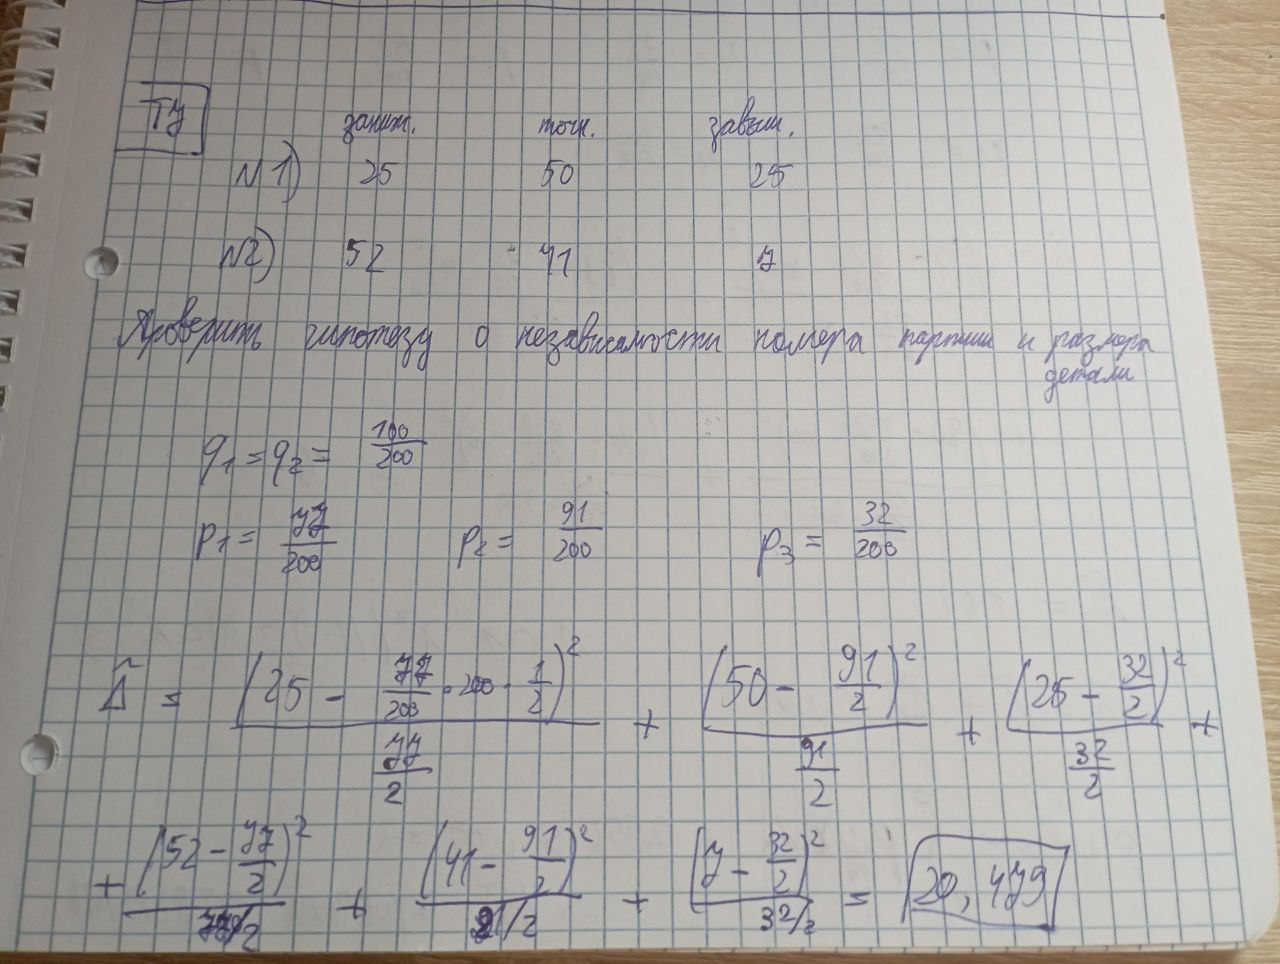 Т7
заниж. точн. завыш.
N1) 25 50 25
N2) 52 41 7
Проверить гипотезу о независимости номера партии и размера
детали
q₁ = q₂ = 100/200
p₁ = 77/200 p₂ = 91/200 p₃ = 32/200
Δ̂ = (25 - 77/200 · 200 · 1/2)² / (77/2) + (50 - 91/2)² / (91/2) + (25 - 32/2)² / (32/2) +
+ (52 - 77/2)² / (77/2) + (41 - 91/2)² / (91/2) + (7 - 32/2)² / (32/2) = 20,479